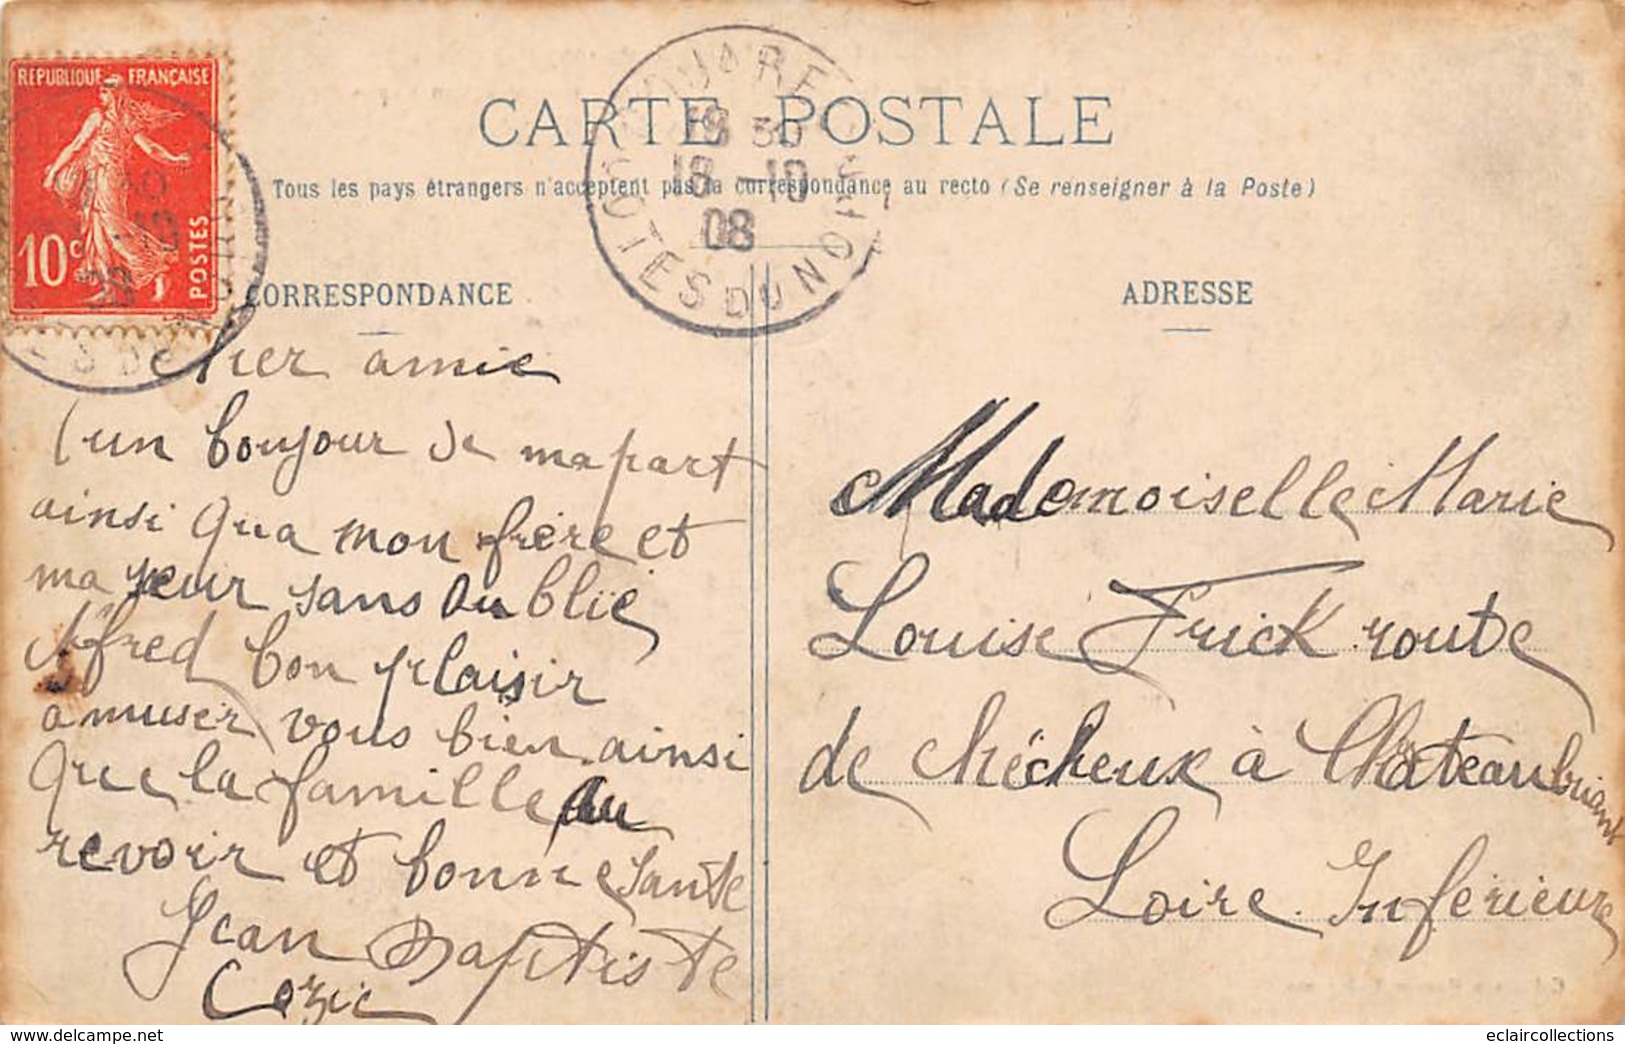 REPUBLIQUE FRANÇAISE
10c
POSTES
CARTE POSTALE
Tous les pays étrangers n'acceptent pas la correspondance au recto (Se renseigner à la Poste)
GOUAREC
18 30
18 -10
08
COTES DU NORD
CORRESPONDANCE
cher amie
un bonjour de ma part
ainsi qua mon frère et
ma seur sans oublié
Alfred bon plaisir
amuser vous bien ainsi
que la famille au
revoir et bonne sante
Jean Baptiste
Cozic
ADRESSE
Mademoiselle Marie
Louise Frick route
de chécheux à Châteaubriant
Loire Inférieure
delcampe.net
eclaircollections